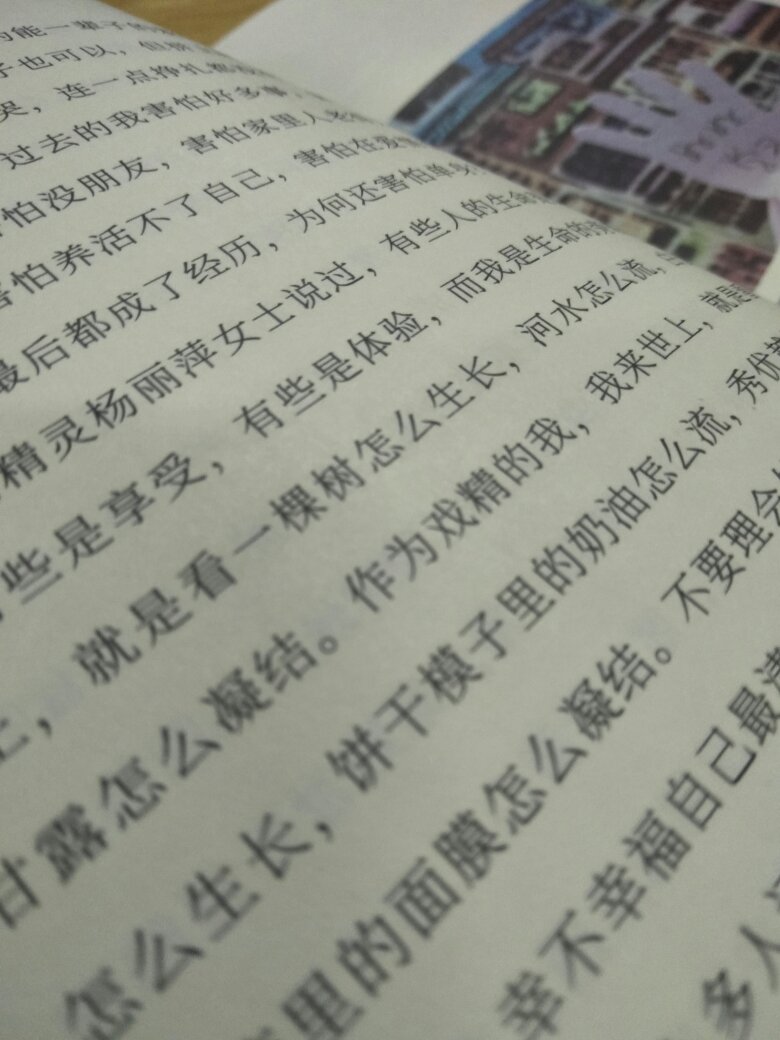 能一辈子的
子也可以，但
哭，连一点挣扎都
过去的我害怕好多事，
害怕没朋友，害怕家里人老
害怕养活不了自己，害怕在
最后都成了经历，为何还害怕单
精灵杨丽萍女士说过，有些人的生命
些是享受，有些是体验，而我是生命的
上，就是看一棵树怎么生长，河水怎么流，
甘露怎么凝结。作为戏精的我，我来世上，就是
怎么生长，饼干模子里的奶油怎么流，秀优
里的面膜怎么凝结。不要理会
幸不幸福自己最清
多人